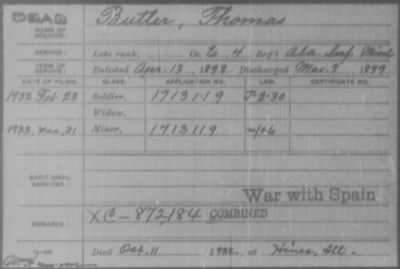 DEAD Butler, Thomas
NAME OF SOLDIER:
SERVICE: Late rank, Co. G, 4 Reg't Ala. Inf.
TERM OF SERVICE: Enlisted Apr. 13, 1898 Discharged Mar. 9, 1899
DATE OF FILING. CLASS. APPLICATION NO. LAW. CERTIFICATE NO.
1932 Feb. 23 Soldier, 1713119 J-2-30
Widow,
1933, Mar. 31 Minor, 1713119
ADDITIONAL SERVICES:
War with Spain
REMARKS: XC-872,184 COMBINED
Died Oct. 11 1932, at Hines, Ill.